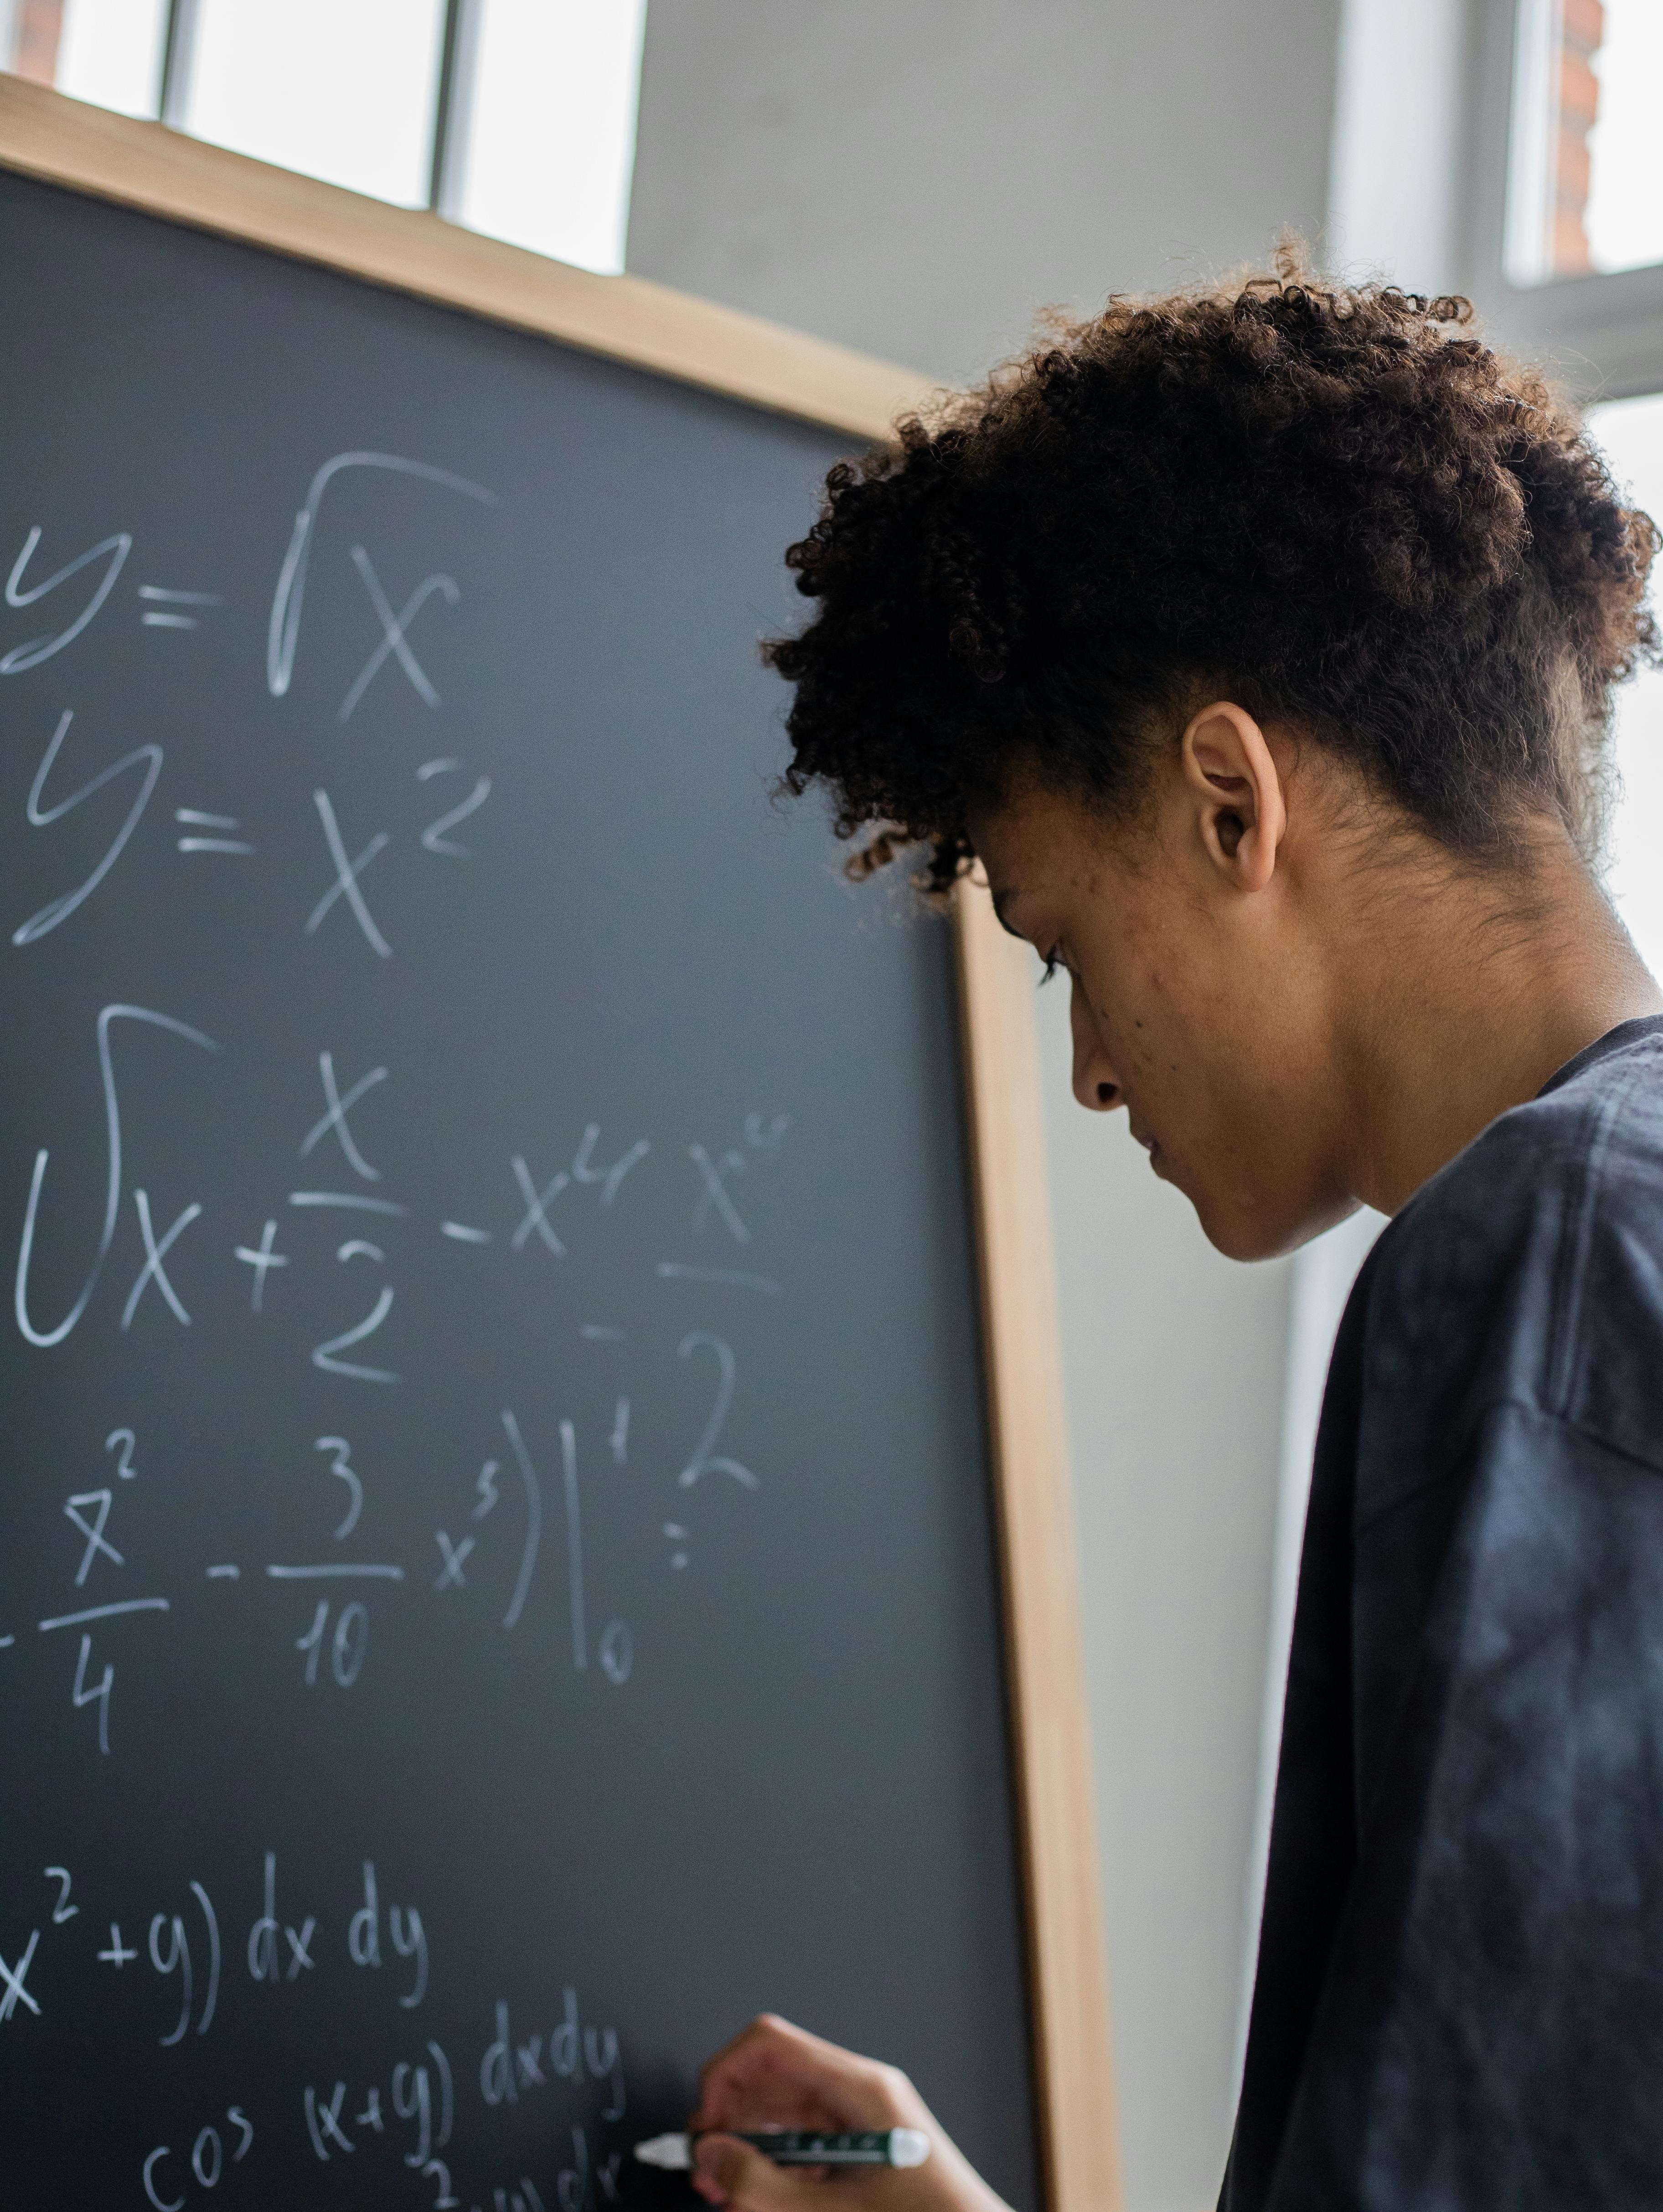 y = √x
y = x²
∫x + x/2 - x⁴ - x⁴/2
- x²/4 - 3/10 x⁵)|¹₀ =
x² + y) dx dy
cos (x+y) dxdy